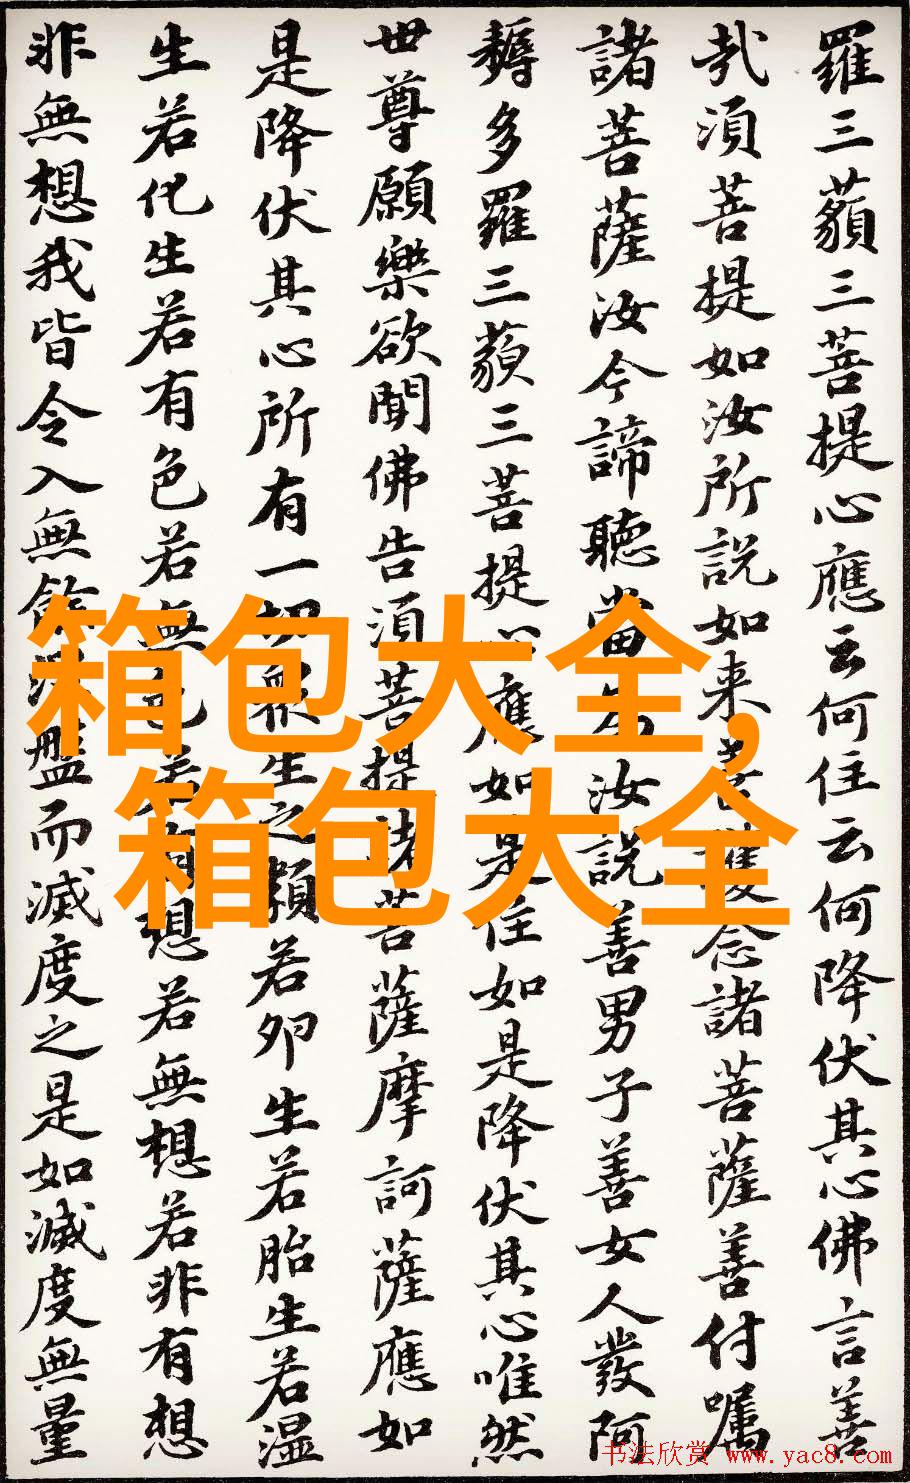 羅三藐三菩提心應云何住云何降伏其心佛言善
哉須菩提如汝所說如来善護念諸菩薩善付囑
諸菩薩汝今諦聽當為汝說善男子善女人發阿
耨多羅三藐三菩提心應如是住如是降伏其心唯然
世尊願樂欲聞佛告須菩提諸菩薩摩訶薩應如
是降伏其心所有一切眾生之類若卵生若胎生若湿
生若化生若有色若無色若有想若無想若非有想
非無想我皆令入無餘涅盤而滅度之是如滅度無量
箱包大全,
箱包大全
书法欣赏 www.yac8.com